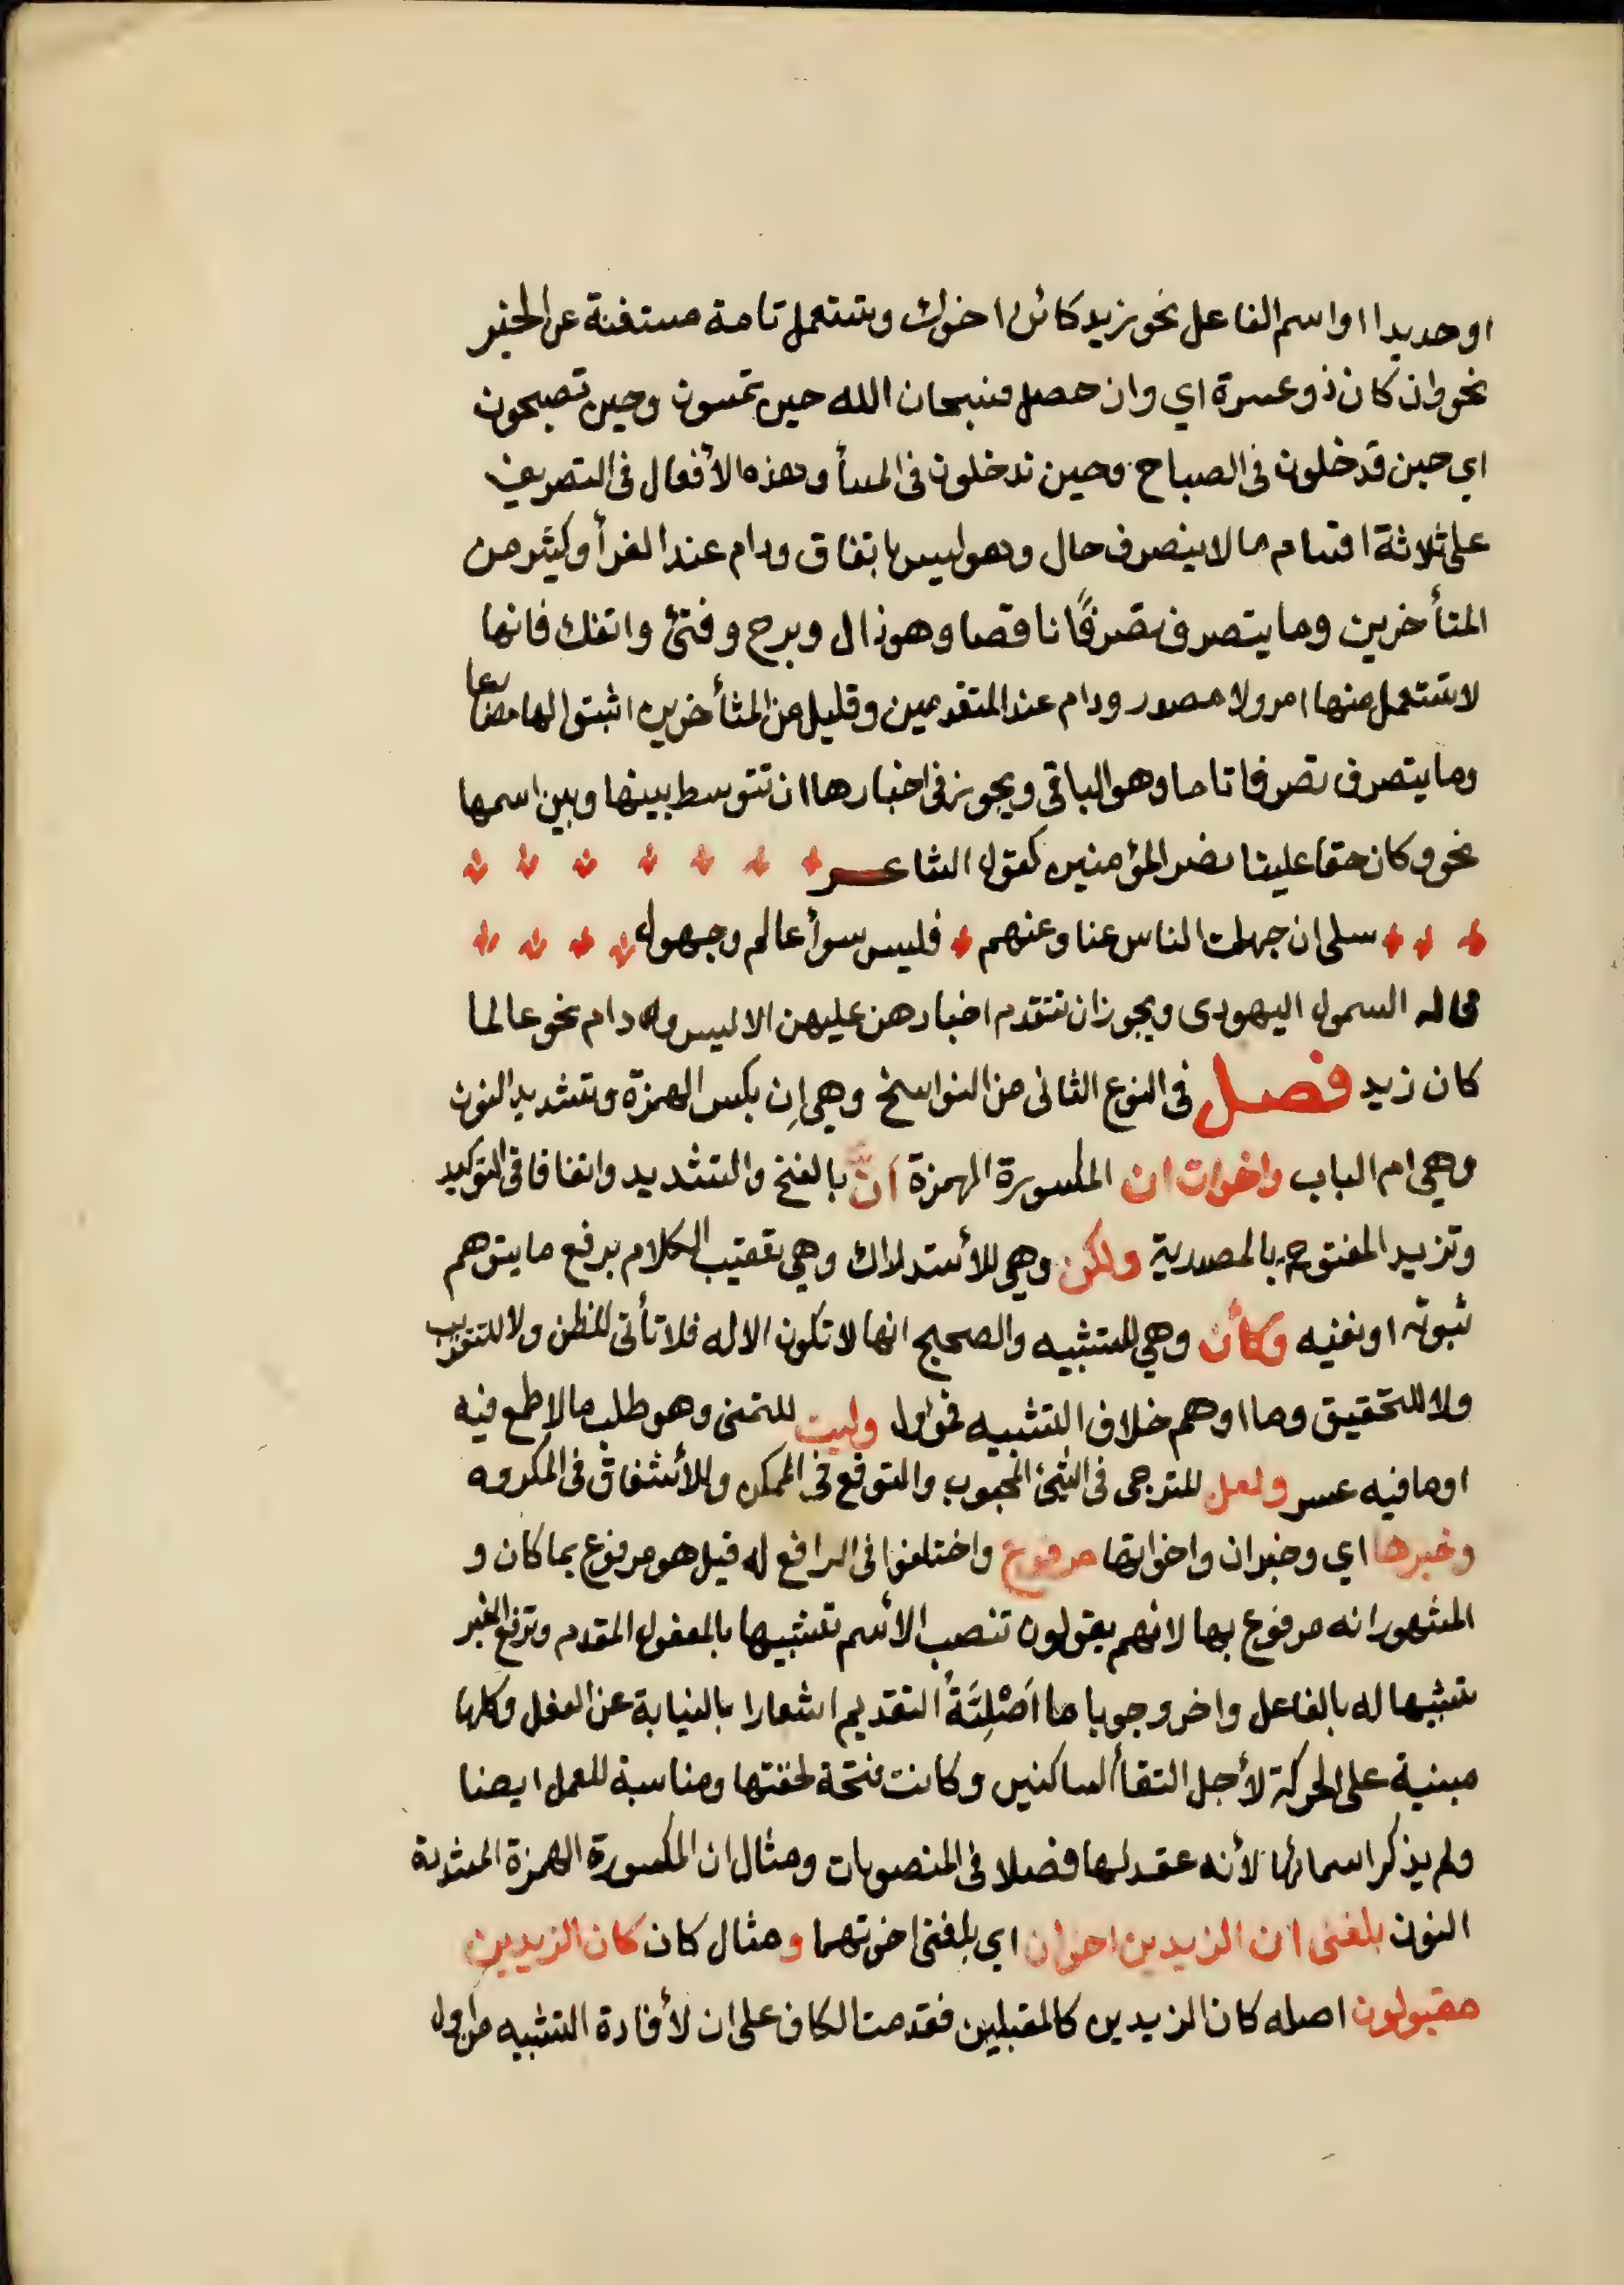 او حديدا او اسم الفاعل نحو زيد كائن اخوك وتستعمل تامة مستغنة عن الخبر
نحو وان كان ذو عسرة اي وان حصل فسبحان الله حين تمسون وحين تصبحون
اي حين تدخلون فى الصباح وحين تدخلون فى المسأ وهذه الأفعال فى التصريف
على ثلاثة اقسام ما لا ينصرف حال وهو ليس باتفاق ودام عند الفرأ وكثير من
المتأخرين وما يتصرف تصرفًا ناقصا وهو زال وبرح وفتئ وانفك فانها
لا تستعمل منها امر ولا مصدر ودام عند المتقدمين وقليل من المتأخرين اثبتوا لها مضارعا
وما يتصرف تصرفا تاما وهو الباقي ويجوز فى اخبارها ان تتوسط بينها وبين اسمها
نحو وكان حقا علينا نصر المؤمنين كقول الشاعر
سلى ان جهلت الناس عنا وعنهم فليس سوأ عالم وجهول
قاله السمول اليهودى ويجوز ان تتقدم اخبارهن عليهن الا ليس و دام نحو عالما
كان زيد فصل فى النوع الثانى من النواسخ وهي إن بكسر الهمزة وتشديد النون
وهي ام الباب واخوات ان المكسورة الهمزة أنّ بالفتح والتشديد واتفاقا فى التوكيد
وتزيد المفتوحة بالمصدرية ولكن وهي للأستدلاك وهي تعقيب الكلام برفع ما يتوهم
ثبوته او نفيه وكأن وهي للتشبيه والصحيح انها لا تكون الا له فلا تأتى للظن ولا للتقريب
ولا للتحقيق وما اوهم خلاف التشبيه فمؤل وليت للتمنى وهو طلب ما لا طمع فيه
او ما فيه عسر ولعل للترجى فى الشئ المحبوب والتوقع فى الممكن وللأشفاق فى المكروه
وخبرها اي وخبر ان واخواتها مرفوع واختلفوا فى الرافع له قيل هو مرفوع بما كان و
المشهور انه مرفوع بها لانهم يقولون تنصب الأسم تشبيها بالمفعول المقدم وترفع الخبر
تشبيها له بالفاعل واخر وجوبا ما اَصْلِيَّةُ التقديم اشعارا بالنيابة عن الفعل وكلها
مبنية على الحركة لأجل التقأ الساكنين وكانت فتحة لخفتها ومناسبة للعمل ايضا
ولم يذكر اسمائها لأنه عقد لها فصلا فى المنصوبات ومثال ان المكسورة الهمزة المشددة
النون بلغنى ان الزيدين اخوان اي بلغنى اخوتهما ومثال كان كان الزيدين
مقبولون اصله كان الزيدين كالمقبلين فقدمت الكاف على ان لأفادة التشبيه من اول